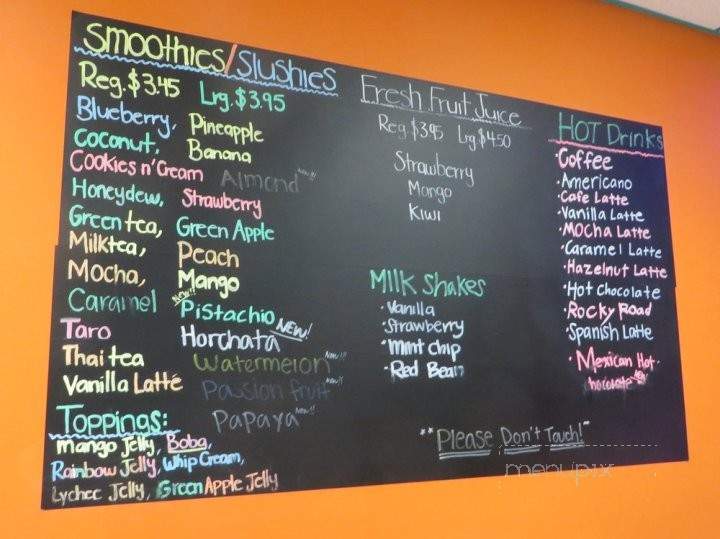 Smoothies/Slushies
Reg. $3.45 Lrg. $3.95
Blueberry, Pineapple
Coconut, Banana
Cookies n' Cream Almond New!!
Honeydew, Strawberry
Green tea, Green Apple
Milktea, Peach
Mocha, Mango
Caramel New!! Pistachio
Taro Horchata NEW!
Thai tea Watermelon New!!
Vanilla Latté Passion fruit New!!
Papaya New!!
Toppings:
Mango Jelly, Boba,
Rainbow Jelly, Whip Cream,
Lychee Jelly, Green Apple Jelly
Fresh Fruit Juice
Reg $3.95 Lrg $4.50
Strawberry
Mango
Kiwi
Milk Shakes
·Vanilla
·Strawberry
·Mint chip
·Red Bean
HOT Drinks
·Coffee
·Americano
·Cafe Latte
·Vanilla Latte
·Mocha Latte
·Caramel Latte
·Hazelnut Latte
·Hot Chocolate
·Rocky Road
·Spanish Latte
·Mexican Hot
hocolate New
**Please Don't Touch!**
menupix